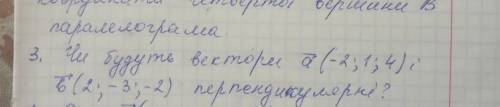 координати четвертої вершини В
паралелограма.
3. Чи будуть вектори a (-2; 1; 4) і
b (2; -3; -2) перпендикулярні?